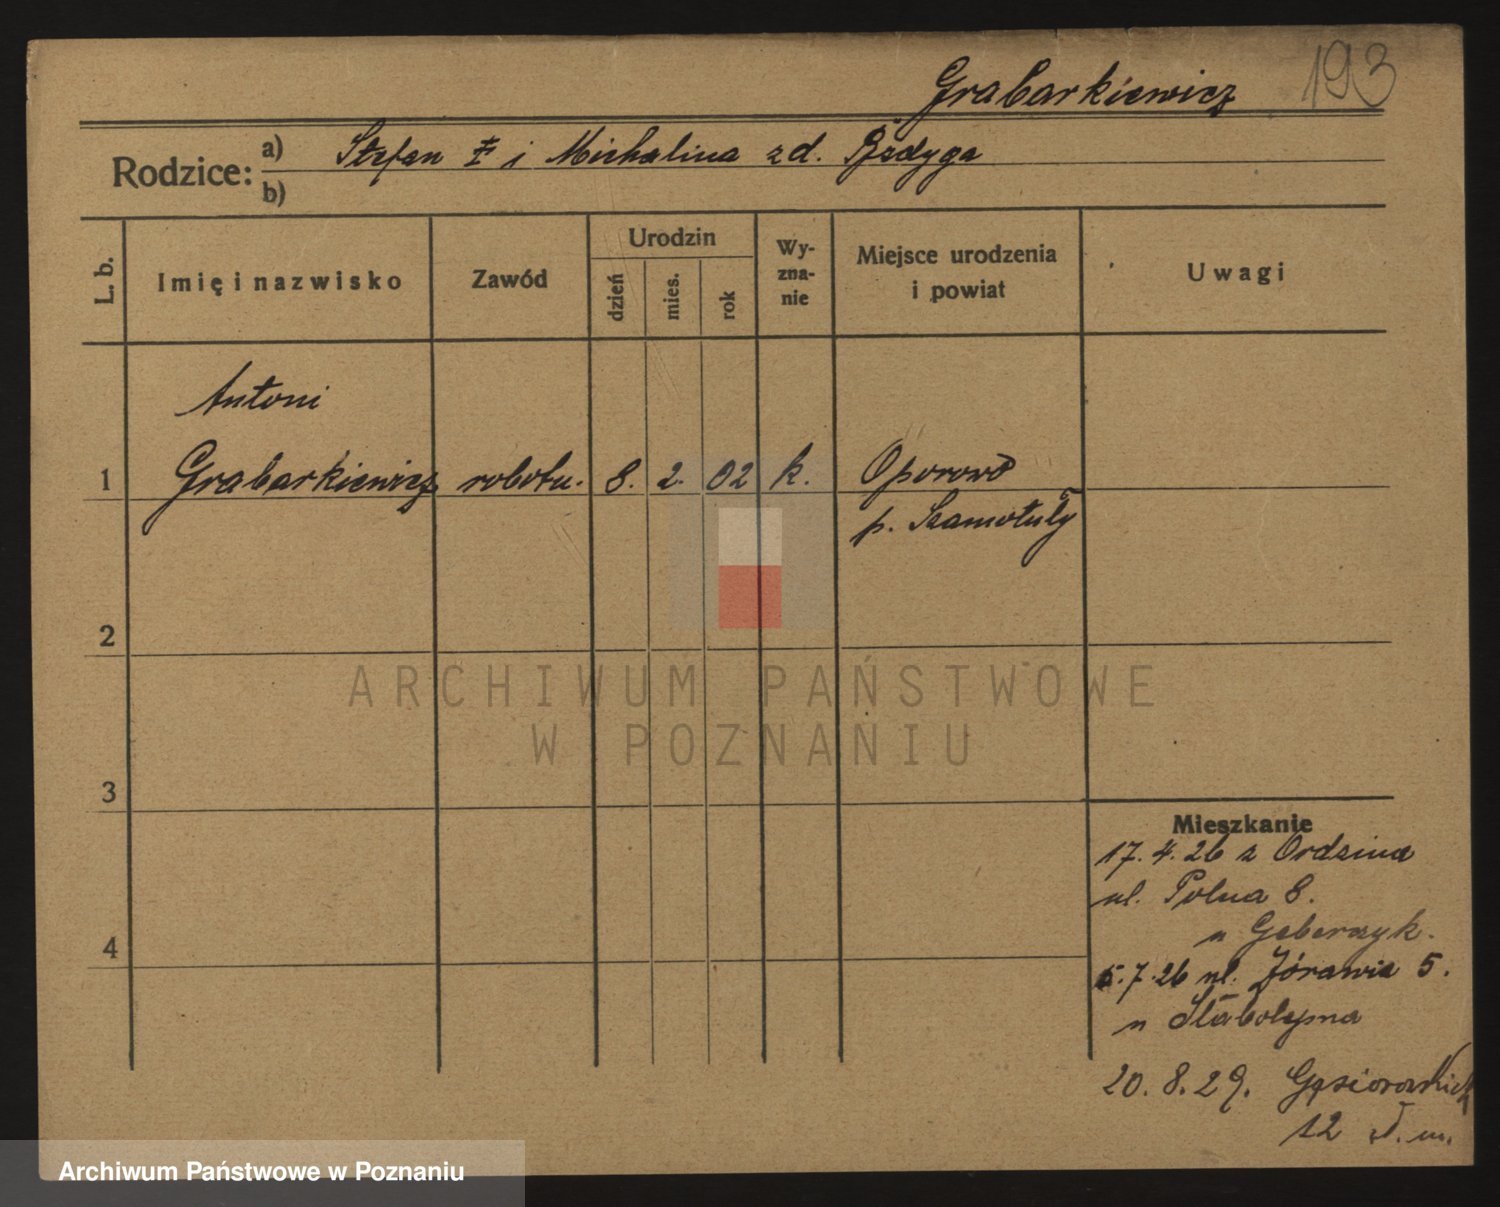 Grabarkiewicz 193
Rodzice: a) Stefan † i Michalina zd. Bzdyga
b)
L. b. Imię i nazwisko Zawód Urodzin dzień mies. rok Wy-zna-nie Miejsce urodzenia i powiat Uwagi
Antoni
1 Grabarkiewicz robotn. 8. 2. 02 k. Oporowo
p. Szamotuły
2
ARCHIWUM PAŃSTWOWE
W POZNANIU
3
Mieszkanie
17. 4. 26 z Ordzina
ul. Polna 8.
u
4
5.7.26 ul. Żórawia 5.
u
20. 8. 29. Gąsiorowskich
12 m.
Archiwum Państwowe w Poznaniu